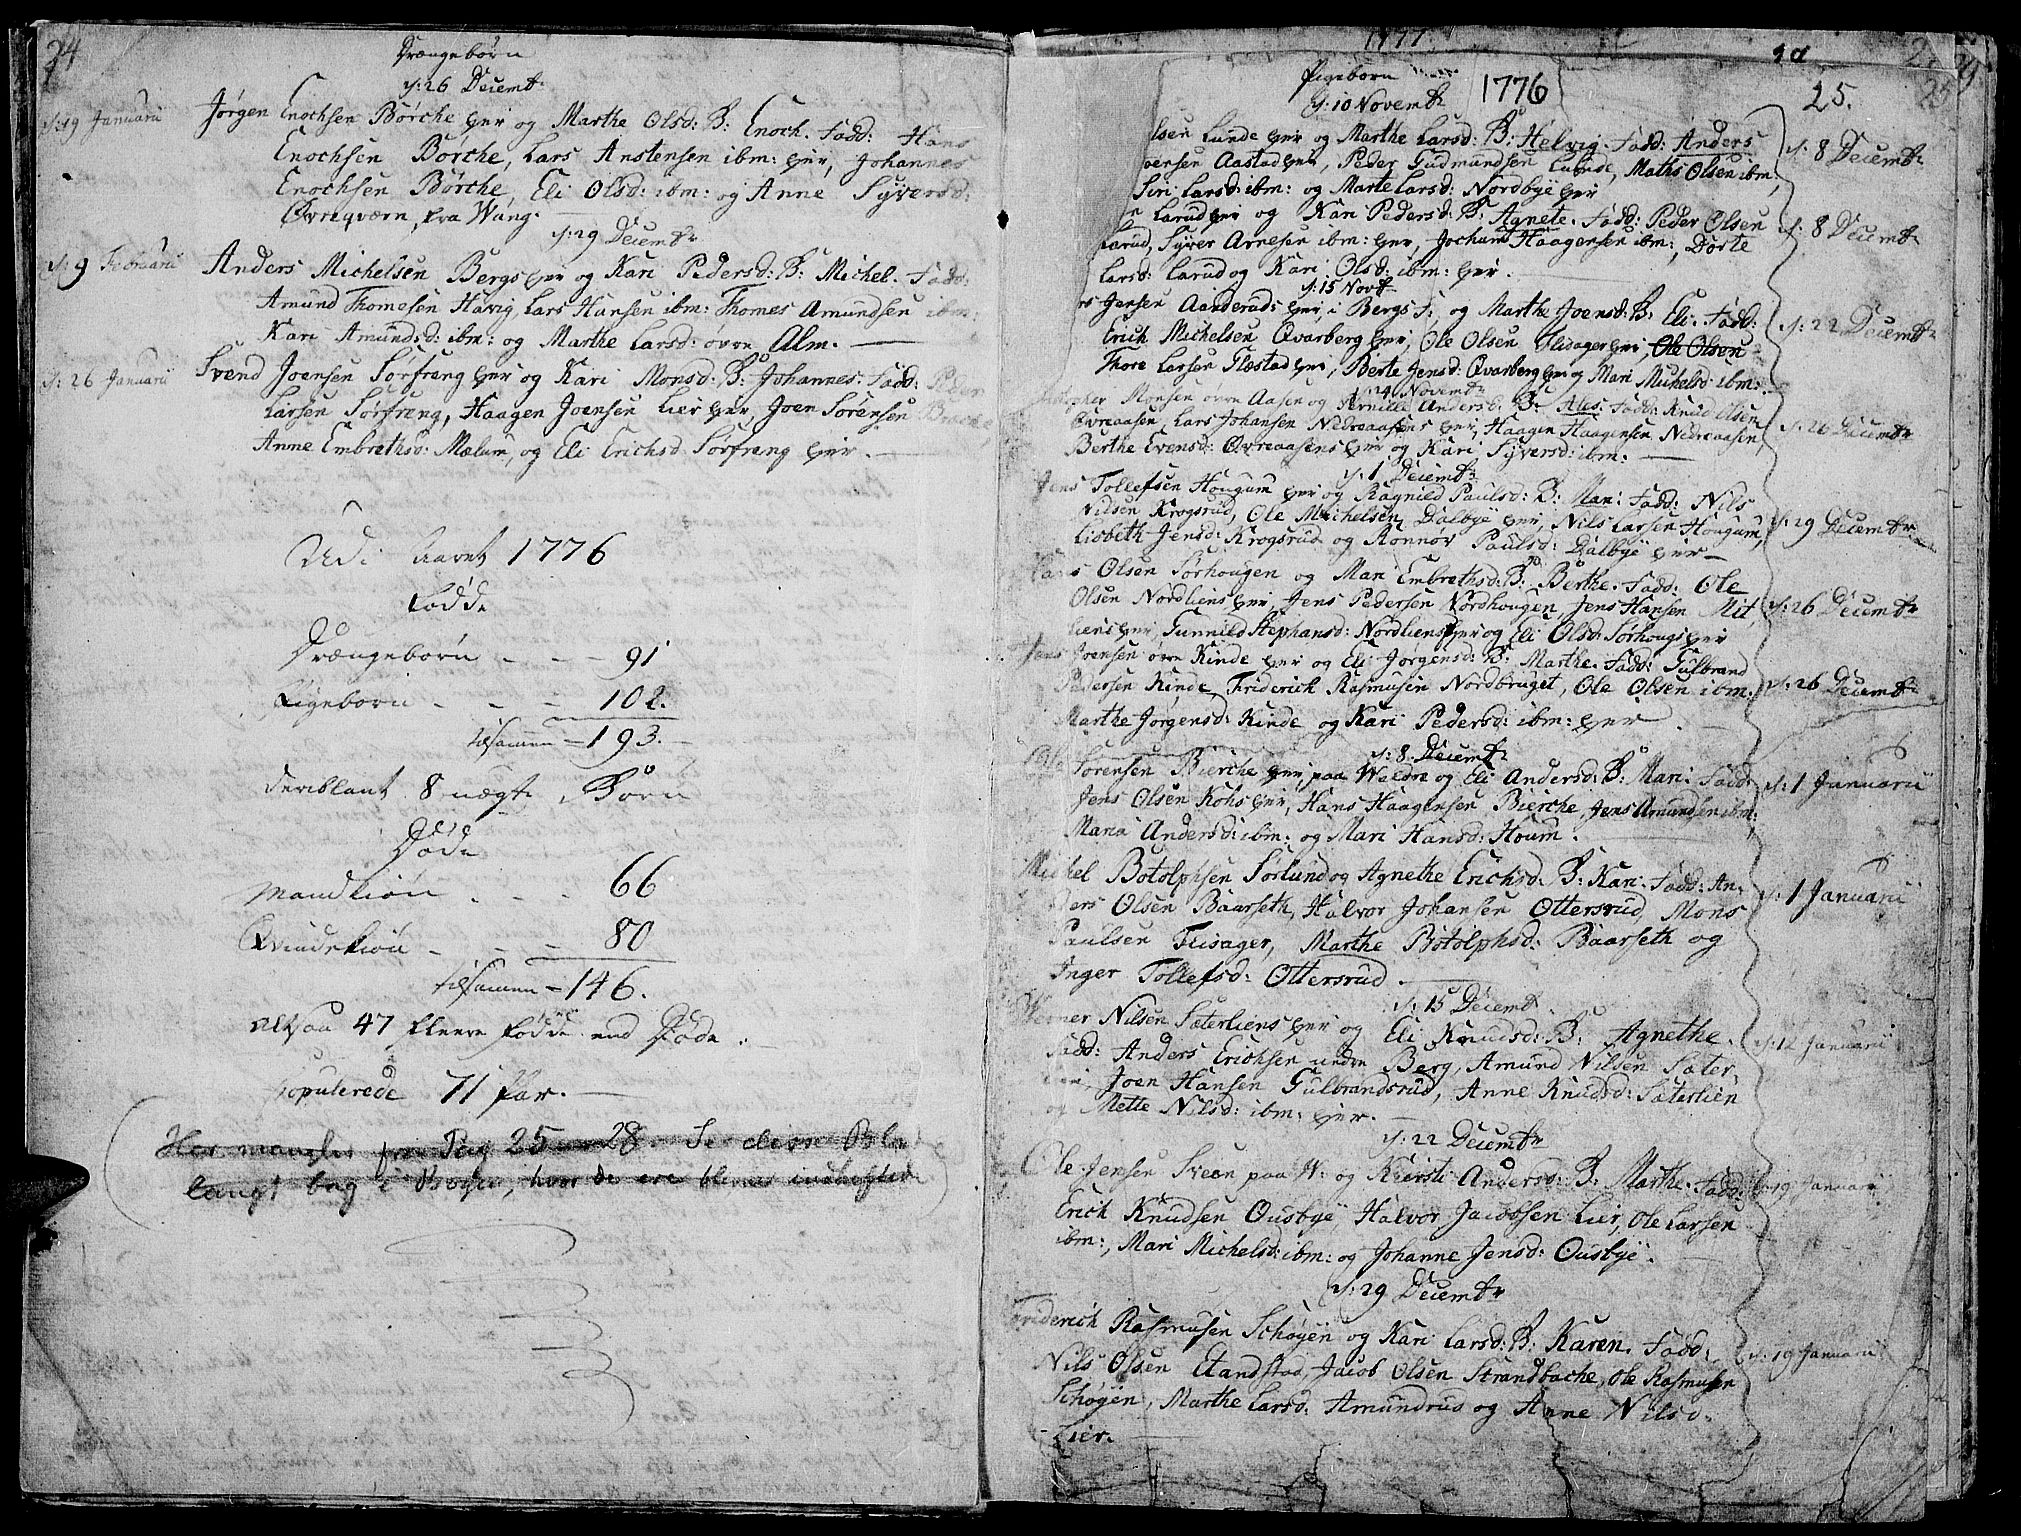 24
Drængebørn
d: 26 Decembr
d: 19 Januarii
Jørgen Enochsen Børche eier og Marthe Olsd: B: Enoch. Fadd: Hans
Enochsen Børche, Lars Anstensen ibm: eier, Johannes
Enochsen Børche, Eli Olsd: ibm: og Anne Syversd:
Øvreqværn, fra Wang.
d: 29 Decembr
d: 9 Februarii
Anders Michelsen Bergs eier og Kari Pedersd: B: Michel. Fadd:
Amund Thomesen Havig, Lars Hansen ibm: Thomes Amundsen ibm:
Kari Amundsd: ibm: og Marthe Larsd: øvre Alm.
d: 26 Januarii
Svend Joensen Sørfreng eier og Kari Monsd: B: Johannes. Fadd: Peder
Larsen Sørfreng, Haagen Joensen Lier eier, Joen Sørensen
Anne Embrethsd: Mælum, og Eli Erichsd Sørfreng eier.
Udi Aaret 1776
Fødde
Drængebørn - - - 91
Pigebørn - - - 102.
tilsammen - 193.
deriblant 8 uægte Børn
Døde
Mandkiøn - - - 66
Qvindekiøn - - - 80
tilsammen - 146.
altsaa 47 fleere fødde end Døde.
Copulerede 71 Par.
Her mangler fra Pag 25 - 28. Se disse Bla
langt bag i Bogen, hvor de ere blevne indheftede
1777.
25
Pigebørn
1776
25.
d: 10 Novembr
lsen Lunde eier og Marthe Larsd: B: Helvig. Fadd: Anders
oensen Aastad eier, Peder Gudmundsen Lunde, Maths Olsen ibm,
d: 8 Decembr
Siri Larsd: ibm: og Marte Larsd: Nordbye eier
Larud eier og Kari Pedersd: B: Agnete. Fadd: Peder Olsen
d: 8 Decembr
Larud, Syver Arnesen ibm: eier, Jochum Haagensen ibm:, Dorte
Larsd: Larud og Kari Olsd: ibm: eier.
d: 15 Novbr
rs Jensen Aanderuds eier i Bergs F: og Marthe Joensd: B: Eli. Fadd:
d: 22 Decembr
Erich Michelsen Qvarberg eier, Ole Olsen Flisager eier, Ole Olsen
Thore Larsen Flæstad eier, Berte Jensd: Qvarberg eier og Mari Michelsd: ibm:
d: 24 Novembr
Monsen øvre Aasen og Pernille Andersd: B: Ales. Fadd: Knud Olsen
Øvreaasen, Lars Johansen Nedreaasens eier, Haagen Haagensen Nedreaasen,
d: 26 Decembr
Berthe Evensd: Øvreaasens eier og Kari Syversd: ibm:
d: 1 Decembr
Jens Tollefsen Hougum eier og Ragnild Paulsd: B: Mari. Fadd: Nils
Nilsen Krogsrud, Ole Michelsen Dalbye eier, Nils Larsen Hougum,
d: 29 Decembr
Lisbeth Jensd: Krogsrud og Ronnov Paulsd: Dalbye eier
Hans Olsen Sørhougen og Mari Embrethsd: B: Berthe. Fadd: Ole
Olsen Nordliens eier, Jens Pedersen Nordhougen, Jens Hansen Mit,
d: 26 Decembr
liens eier, Gunnild Stephansd: Nordliens eier og Eli Olsd: Sørhougs eier
Jens Joensen øvre Kinde eier og Eli Jørgensd: B: Marthe. Fadd: Gulbrand
Pedersen Kinde, Friderich Rasmusen Nordbruget, Ole Olsen ibm.
d: 26 Decembr
Marthe Jørgensd: Kinde og Kari Pedersd: ibm: eier.
d: 8 Decembr
Ole Sørensen Bierche eier paa Weldre og Eli Andersd: B: Mari. Fadd:
d: 1 Januarii
Jens Olsen Kohs eier, Hans Haagensen Bierche, Jens Amundsen ibm:
Maria Andersd: ibm: og Mari Hansd: Houm.
Michel Botolphsen Sørlund og Agnethe Erichsd: B: Kari. Fadd: An-
d: 1 Januarii
ders Olsen Baarseth, Halvor Johansen Ottersrud, Mons
Paulsen Flisager, Marthe Botolphsd: Baarseth og
Inger Tollefsd: Ottersrud.
d: 15 Decembr
Werner Nilsen Sæterliens eier og Eli Knudsd: B: Agnethe.
d: 12 Januarii
Fadd: Anders Erichsen nedre Berg, Amund Nilsen Sæter
lien, Joen Hansen Gulbrandsrud, Anne Knudsd: Sæterlien
og Mette Nilsd: ibm: eier.
d: 22 Decembr
Ole Jensen Sveen paa W: og Kierste Andersd: B: Marthe. Fadd:
d: 19 Januarii
Erich Knudsen Ousbye, Halvor Jacobsen Lier, Ole Larsen
ibm:, Mari Michelsd: ibm: og Johanne Jensd: Ousbye.
d: 29 Decembr
Friderich Rasmusen Schøyen og Kari Larsd: B: Karen. Fadd:
d: 19 Januarii
Nils Olsen Standstad, Jacob Olsen Strandbache, Ole Rasmusen
Schøyen, Marthe Larsd: Amundrud og Anne Nilsd.
Lier.